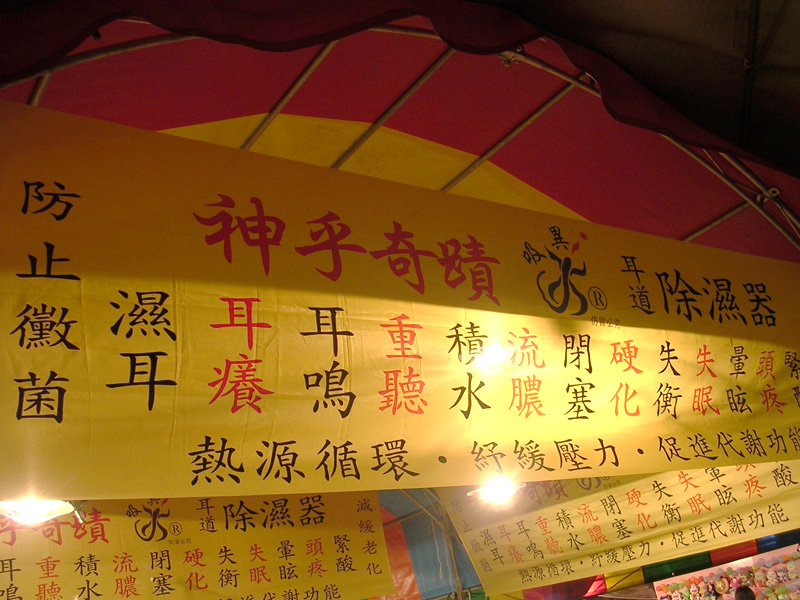 防止黴菌
神乎奇蹟
吸異
®
仿冒必究
耳道
除濕器
濕耳
耳癢
耳鳴
重聽
積水
流膿
閉塞
硬化
失衡
失眠
暈眩
頭疼
緊酸
熱源循環・紓緩壓力・促進代謝功能
乎奇蹟
®
耳道
除濕器
減緩老化
耳鳴
重聽
積水
流膿
閉塞
硬化
失衡
失眠
暈眩
頭疼
緊酸
促進代謝功能
防止黴菌
濕耳
耳癢
耳鳴
重聽
積水
流膿
閉塞
硬化
失衡
失眠
暈眩
頭疼
緊酸
熱源循環・紓緩壓力・促進代謝功能